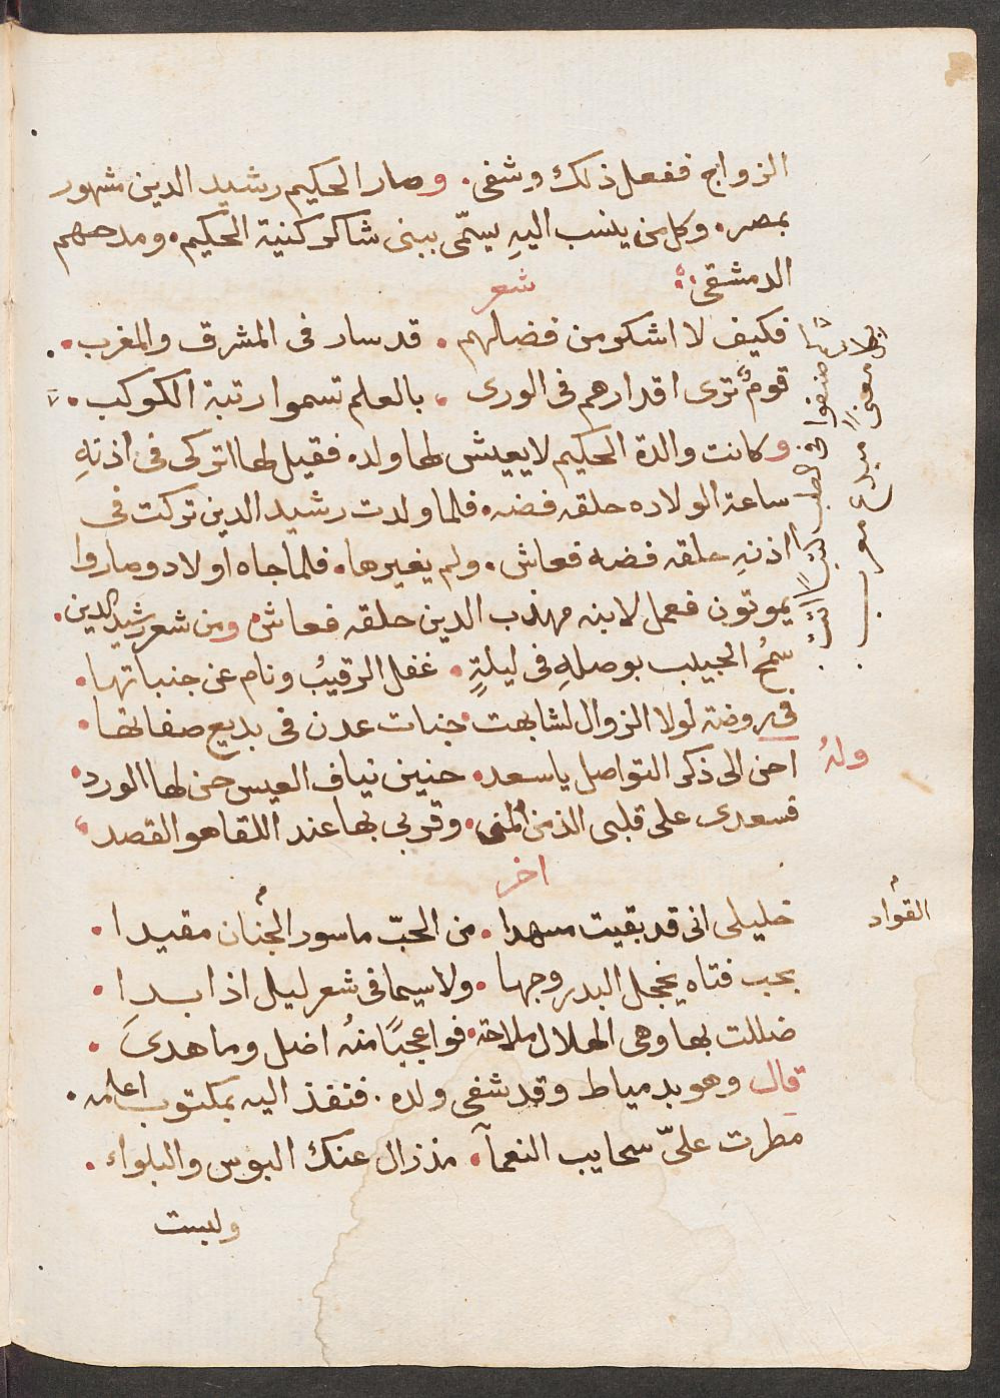 الزواج ففعل ذلك وشفى. وصار الحكيم رشيد الدين مشهور
بمصر. وكل من ينسب اليهِ يسمّى ببنى شاكر كنية الحكيم. ومدحهم
الدمشقى
شعر
فكيف لا اشكر من فضلهم . قد سار فى المشرق والمغرب.
قومٌ ترى اقدارهم فى الورى . بالعلم تسموا رتبة الكوكب.
وكانت والدة الحكيم لا يعيش لها ولد فقيل لها اتركى فى اذنهِ
ساعة الولاده حلقه فضه. فلما ولدت رشيد الدين تركت فى
اذنهِ حلقه فضه فعاش. ولم يغيرها. فلما جاه اولاد وصاروا
يموتون فعمل لابنه مهذب الدين حلقه فعاش ومن شعر رشيد الدين.
سمُح الحبيب بوصلهِ فى ليلةٍ . غفل الرقيبُ ونام عن جنباتها.
فى روضة لولا الزوال لشابهت. جنات عدن فى بديع صفاتها.
ولهُ
احن الى ذكر التواصل يا سعد. حنين نياف العيس حن لها الورد.
فسعدى على قلبى الذ من المنى. وقربى بها عند اللقا هو القصد.
اخر
خليلى انى قد بقيت مسهدا . من الحبّ ماسور الجُنان مقيدا .
بحب فتاه يخجل البدر وجهها . ولا سيما فى شعر ليل اذا بدا .
ضللت بها وهى الهلال ملاحة. فواعجبًا منهُ اضل وما هدىَ .
قال وهو بدمياط وقد شفى ولده . فنفذ اليه بمكتوب اعلمه .
مطرت علىّ سحايب النعمآ. مذ زال عنك البوس والبلواء .
وليست
صنفوا فى الطب كتبًا اتت
معنىً مبدع معرب
القواد